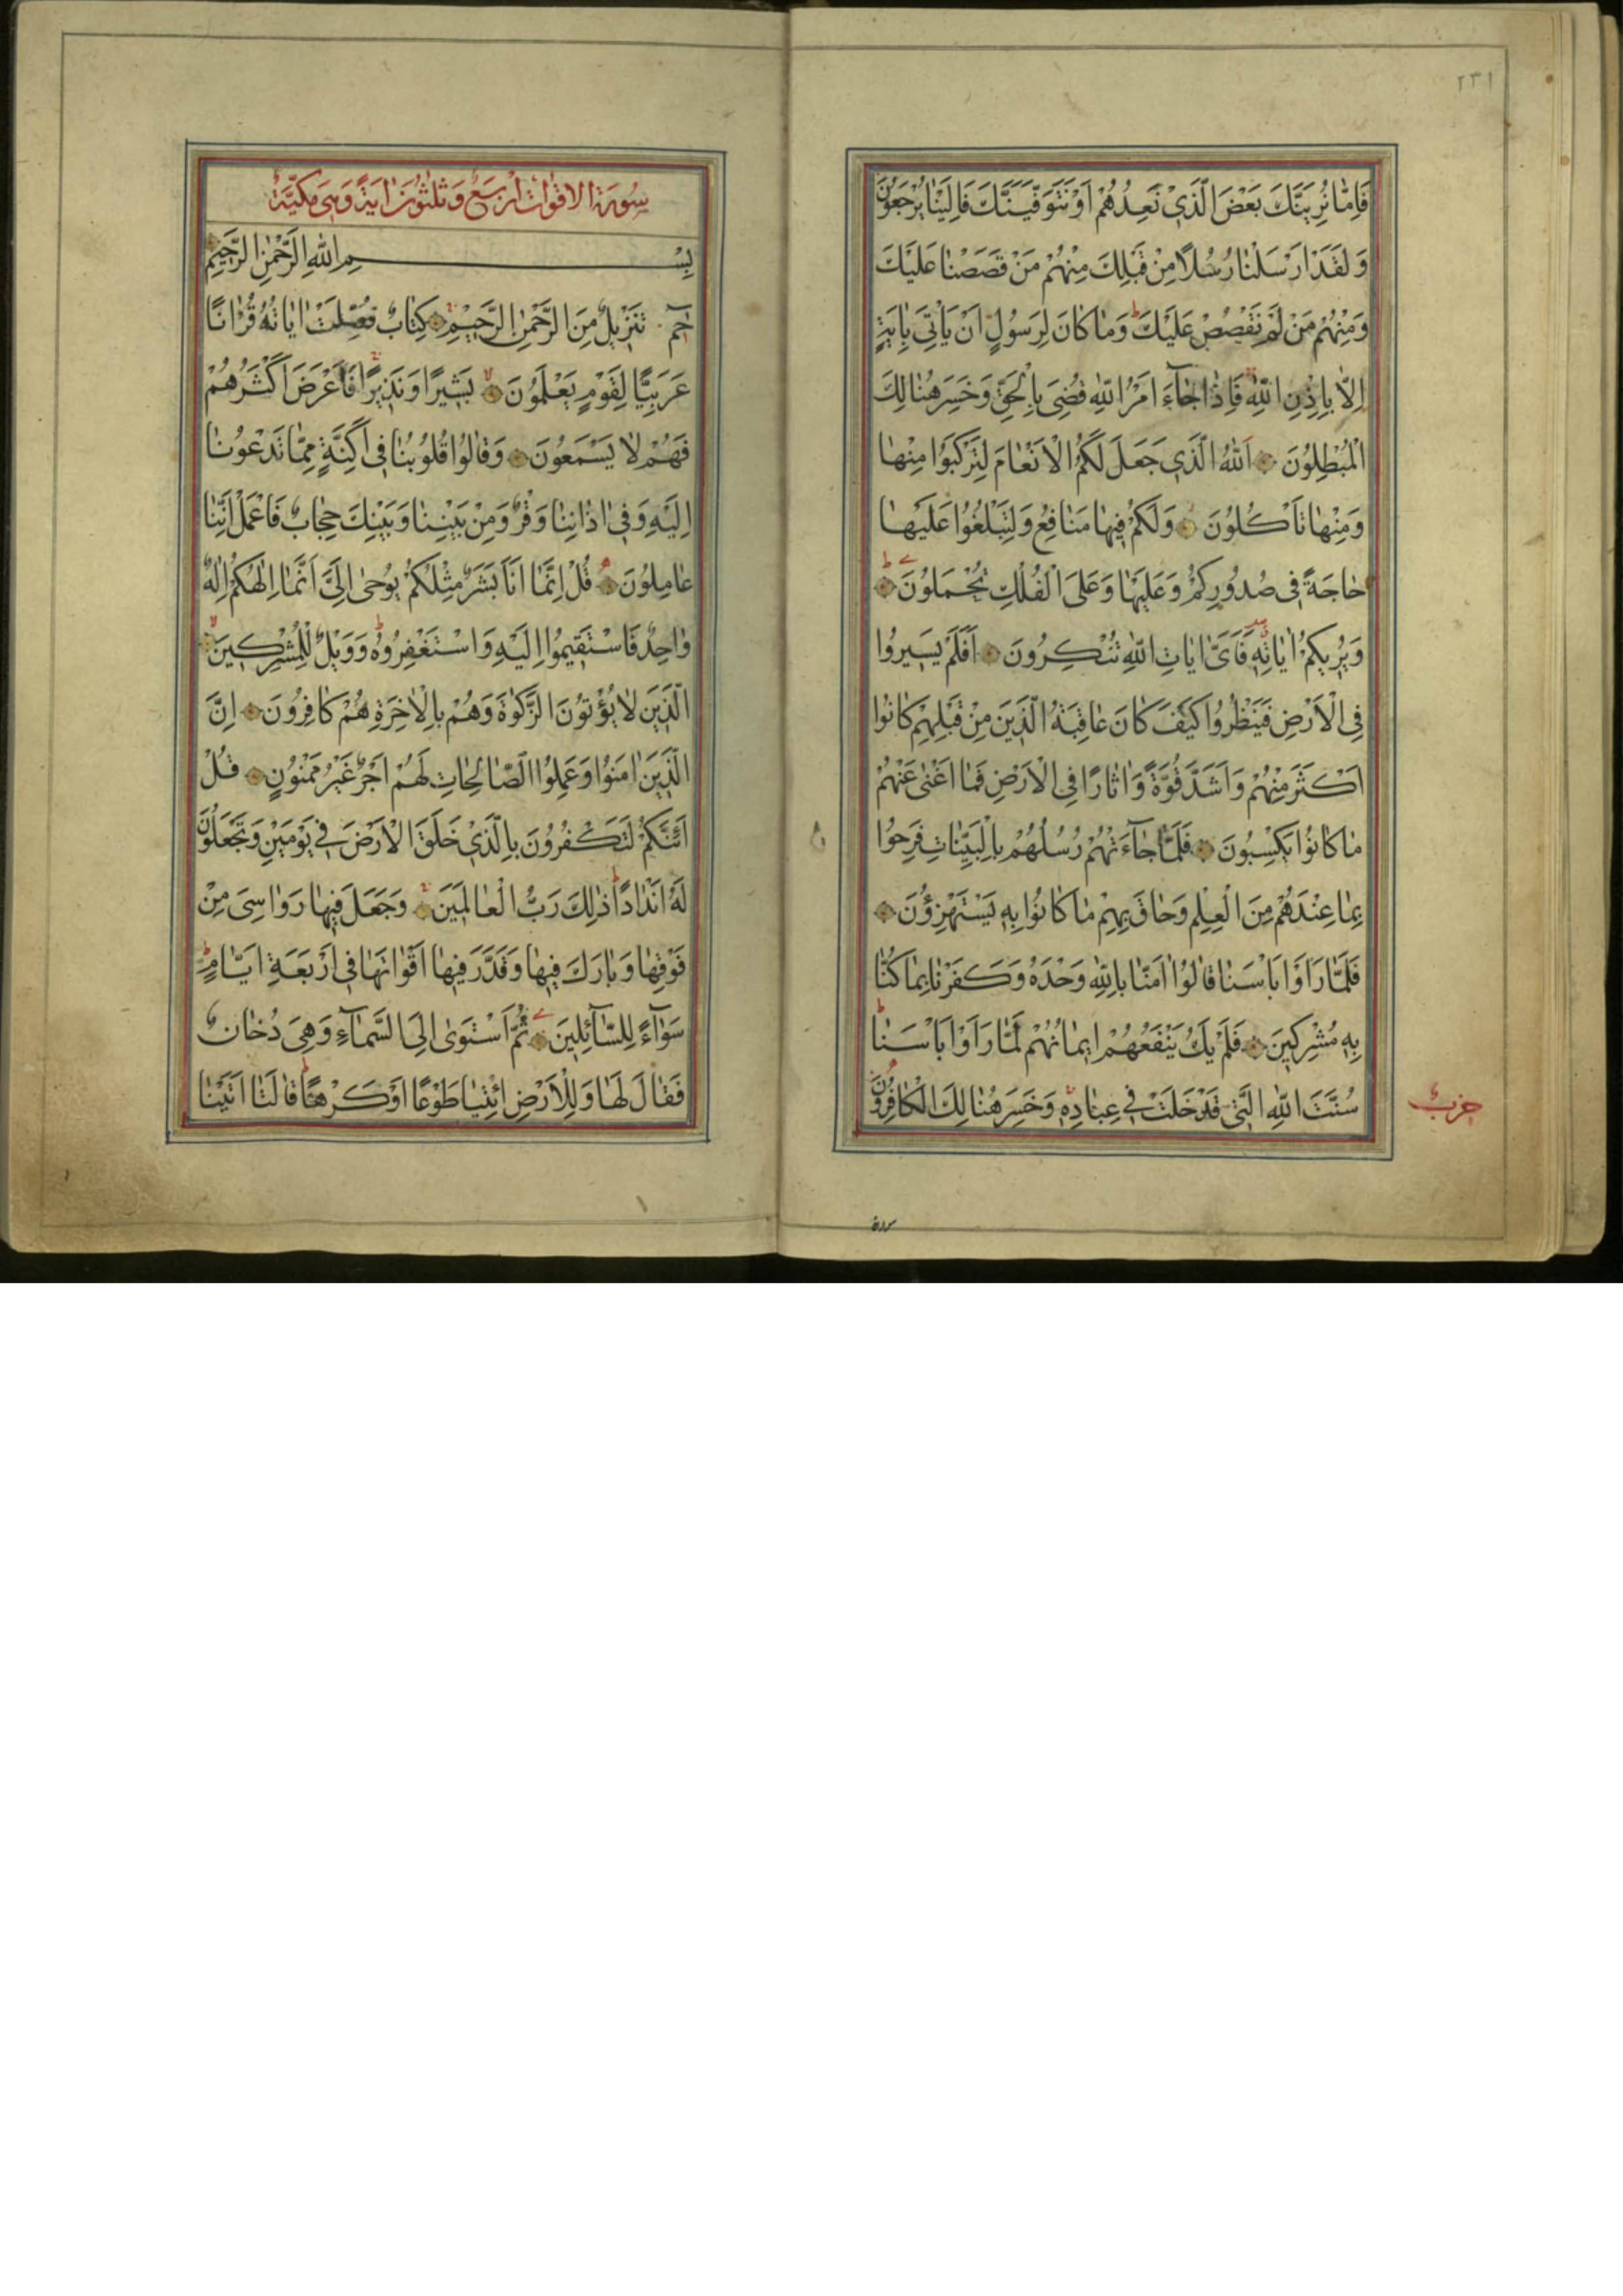 ٢٣١
فَاِمَّا نُرِيَنَّكَ بَعْضَ الَّذٖي نَعِدُهُمْ اَوْ نَتَوَفَّيَنَّكَ فَاِلَيْنَا يُرْجَعُونَ
وَلَقَدْ اَرْسَلْنَا رُسُلًا مِنْ قَبْلِكَ مِنْهُمْ مَنْ قَصَصْنَا عَلَيْكَ
وَمِنْهُمْ مَنْ لَمْ نَقْصُصْ عَلَيْكَ ط وَمَا كَانَ لِرَسُولٍ اَنْ يَاْتِيَ بِاٰيَةٍ
اِلَّا بِاِذْنِ اللّٰهِ فَاِذَا جَآءَ اَمْرُ اللّٰهِ قُضِيَ بِالْحَقِّ وَخَسِرَ هُنَالِكَ
الْمُبْطِلُونَ اَللّٰهُ الَّذٖي جَعَلَ لَكُمُ الْاَنْعَامَ لِتَرْكَبُوا مِنْهَا
وَمِنْهَا تَاْكُلُونَ وَلَكُمْ فٖيهَا مَنَافِعُ وَلِتَبْلُغُوا عَلَيْهَا
حَاجَةً فٖي صُدُورِكُمْ وَعَلَيْهَا وَعَلَى الْفُلْكِ تُحْمَلُونَ
وَيُرٖيكُمْ اٰيَاتِهٖ فَاَيَّ اٰيَاتِ اللّٰهِ تُنْكِرُونَ اَفَلَمْ يَسٖيرُوا
فِي الْاَرْضِ فَيَنْظُرُوا كَيْفَ كَانَ عَاقِبَةُ الَّذٖينَ مِنْ قَبْلِهِمْ كَانُوا
اَكْثَرَ مِنْهُمْ وَاَشَدَّ قُوَّةً وَاٰثَارًا فِي الْاَرْضِ فَمَا اَغْنٰى عَنْهُمْ
مَا كَانُوا يَكْسِبُونَ فَلَمَّا جَآءَتْهُمْ رُسُلُهُمْ بِالْبَيِّنَاتِ فَرِحُوا
بِمَا عِنْدَهُمْ مِنَ الْعِلْمِ وَحَاقَ بِهِمْ مَا كَانُوا بِهٖ يَسْتَهْزِؤُنَ
فَلَمَّا رَاَوْا بَاْسَنَا قَالُوا اٰمَنَّا بِاللّٰهِ وَحْدَهُ وَكَفَرْنَا بِمَا كُنَّا
بِهٖ مُشْرِكٖينَ فَلَمْ يَكُ يَنْفَعُهُمْ اٖيمَانُهُمْ لَمَّا رَاَوْا بَاْسَنَا ط
سُنَّتَ اللّٰهِ الَّتٖي قَدْ خَلَتْ فٖي عِبَادِهٖ وَخَسِرَ هُنَالِكَ الْكَافِرُونَ
حزب
سورة
سُورَةُ الاقوات اَرْبَعٌ وَثَلٰثُونَ اٰيَةً وَهِيَ مَكِّيَّةٌ
بِسْمِ اللّٰهِ الرَّحْمٰنِ الرَّحٖيمِ
حٰمٓ تَنْزٖيلٌ مِنَ الرَّحْمٰنِ الرَّحٖيمِ كِتَابٌ فُصِّلَتْ اٰيَاتُهُ قُرْاٰنًا
عَرَبِيًّا لِقَوْمٍ يَعْلَمُونَ بَشٖيرًا وَنَذٖيرًا فَاَعْرَضَ اَكْثَرُهُمْ
فَهُمْ لَا يَسْمَعُونَ وَقَالُوا قُلُوبُنَا فٖي اَكِنَّةٍ مِمَّا تَدْعُونَا
اِلَيْهِ وَفٖي اٰذَانِنَا وَقْرٌ وَمِنْ بَيْنِنَا وَبَيْنِكَ حِجَابٌ فَاعْمَلْ اِنَّنَا
عَامِلُونَ قُلْ اِنَّمَا اَنَا بَشَرٌ مِثْلُكُمْ يُوحٰى اِلَيَّ اَنَّمَا اِلٰهُكُمْ اِلٰهٌ
وَاحِدٌ فَاسْتَقٖيمُوا اِلَيْهِ وَاسْتَغْفِرُوهُ ط وَوَيْلٌ لِلْمُشْرِكٖينَ
الَّذٖينَ لَا يُؤْتُونَ الزَّكٰوةَ وَهُمْ بِالْاٰخِرَةِ هُمْ كَافِرُونَ اِنَّ
الَّذٖينَ اٰمَنُوا وَعَمِلُوا الصَّالِحَاتِ لَهُمْ اَجْرٌ غَيْرُ مَمْنُونٍ قُلْ
اَئِنَّكُمْ لَتَكْفُرُونَ بِالَّذٖي خَلَقَ الْاَرْضَ فٖي يَوْمَيْنِ وَتَجْعَلُونَ
لَهُ اَنْدَادًا ط ذٰلِكَ رَبُّ الْعَالَمٖينَ وَجَعَلَ فٖيهَا رَوَاسِيَ مِنْ
فَوْقِهَا وَبَارَكَ فٖيهَا وَقَدَّرَ فٖيهَا اَقْوَاتَهَا فٖي اَرْبَعَةِ اَيَّامٍ ط
سَوَآءً لِلسَّآئِلٖينَ ثُمَّ اسْتَوٰى اِلَى السَّمَآءِ وَهِيَ دُخَانٌ
فَقَالَ لَهَا وَلِلْاَرْضِ ائْتِيَا طَوْعًا اَوْ كَرْهًا ط قَالَتَا اَتَيْنَا